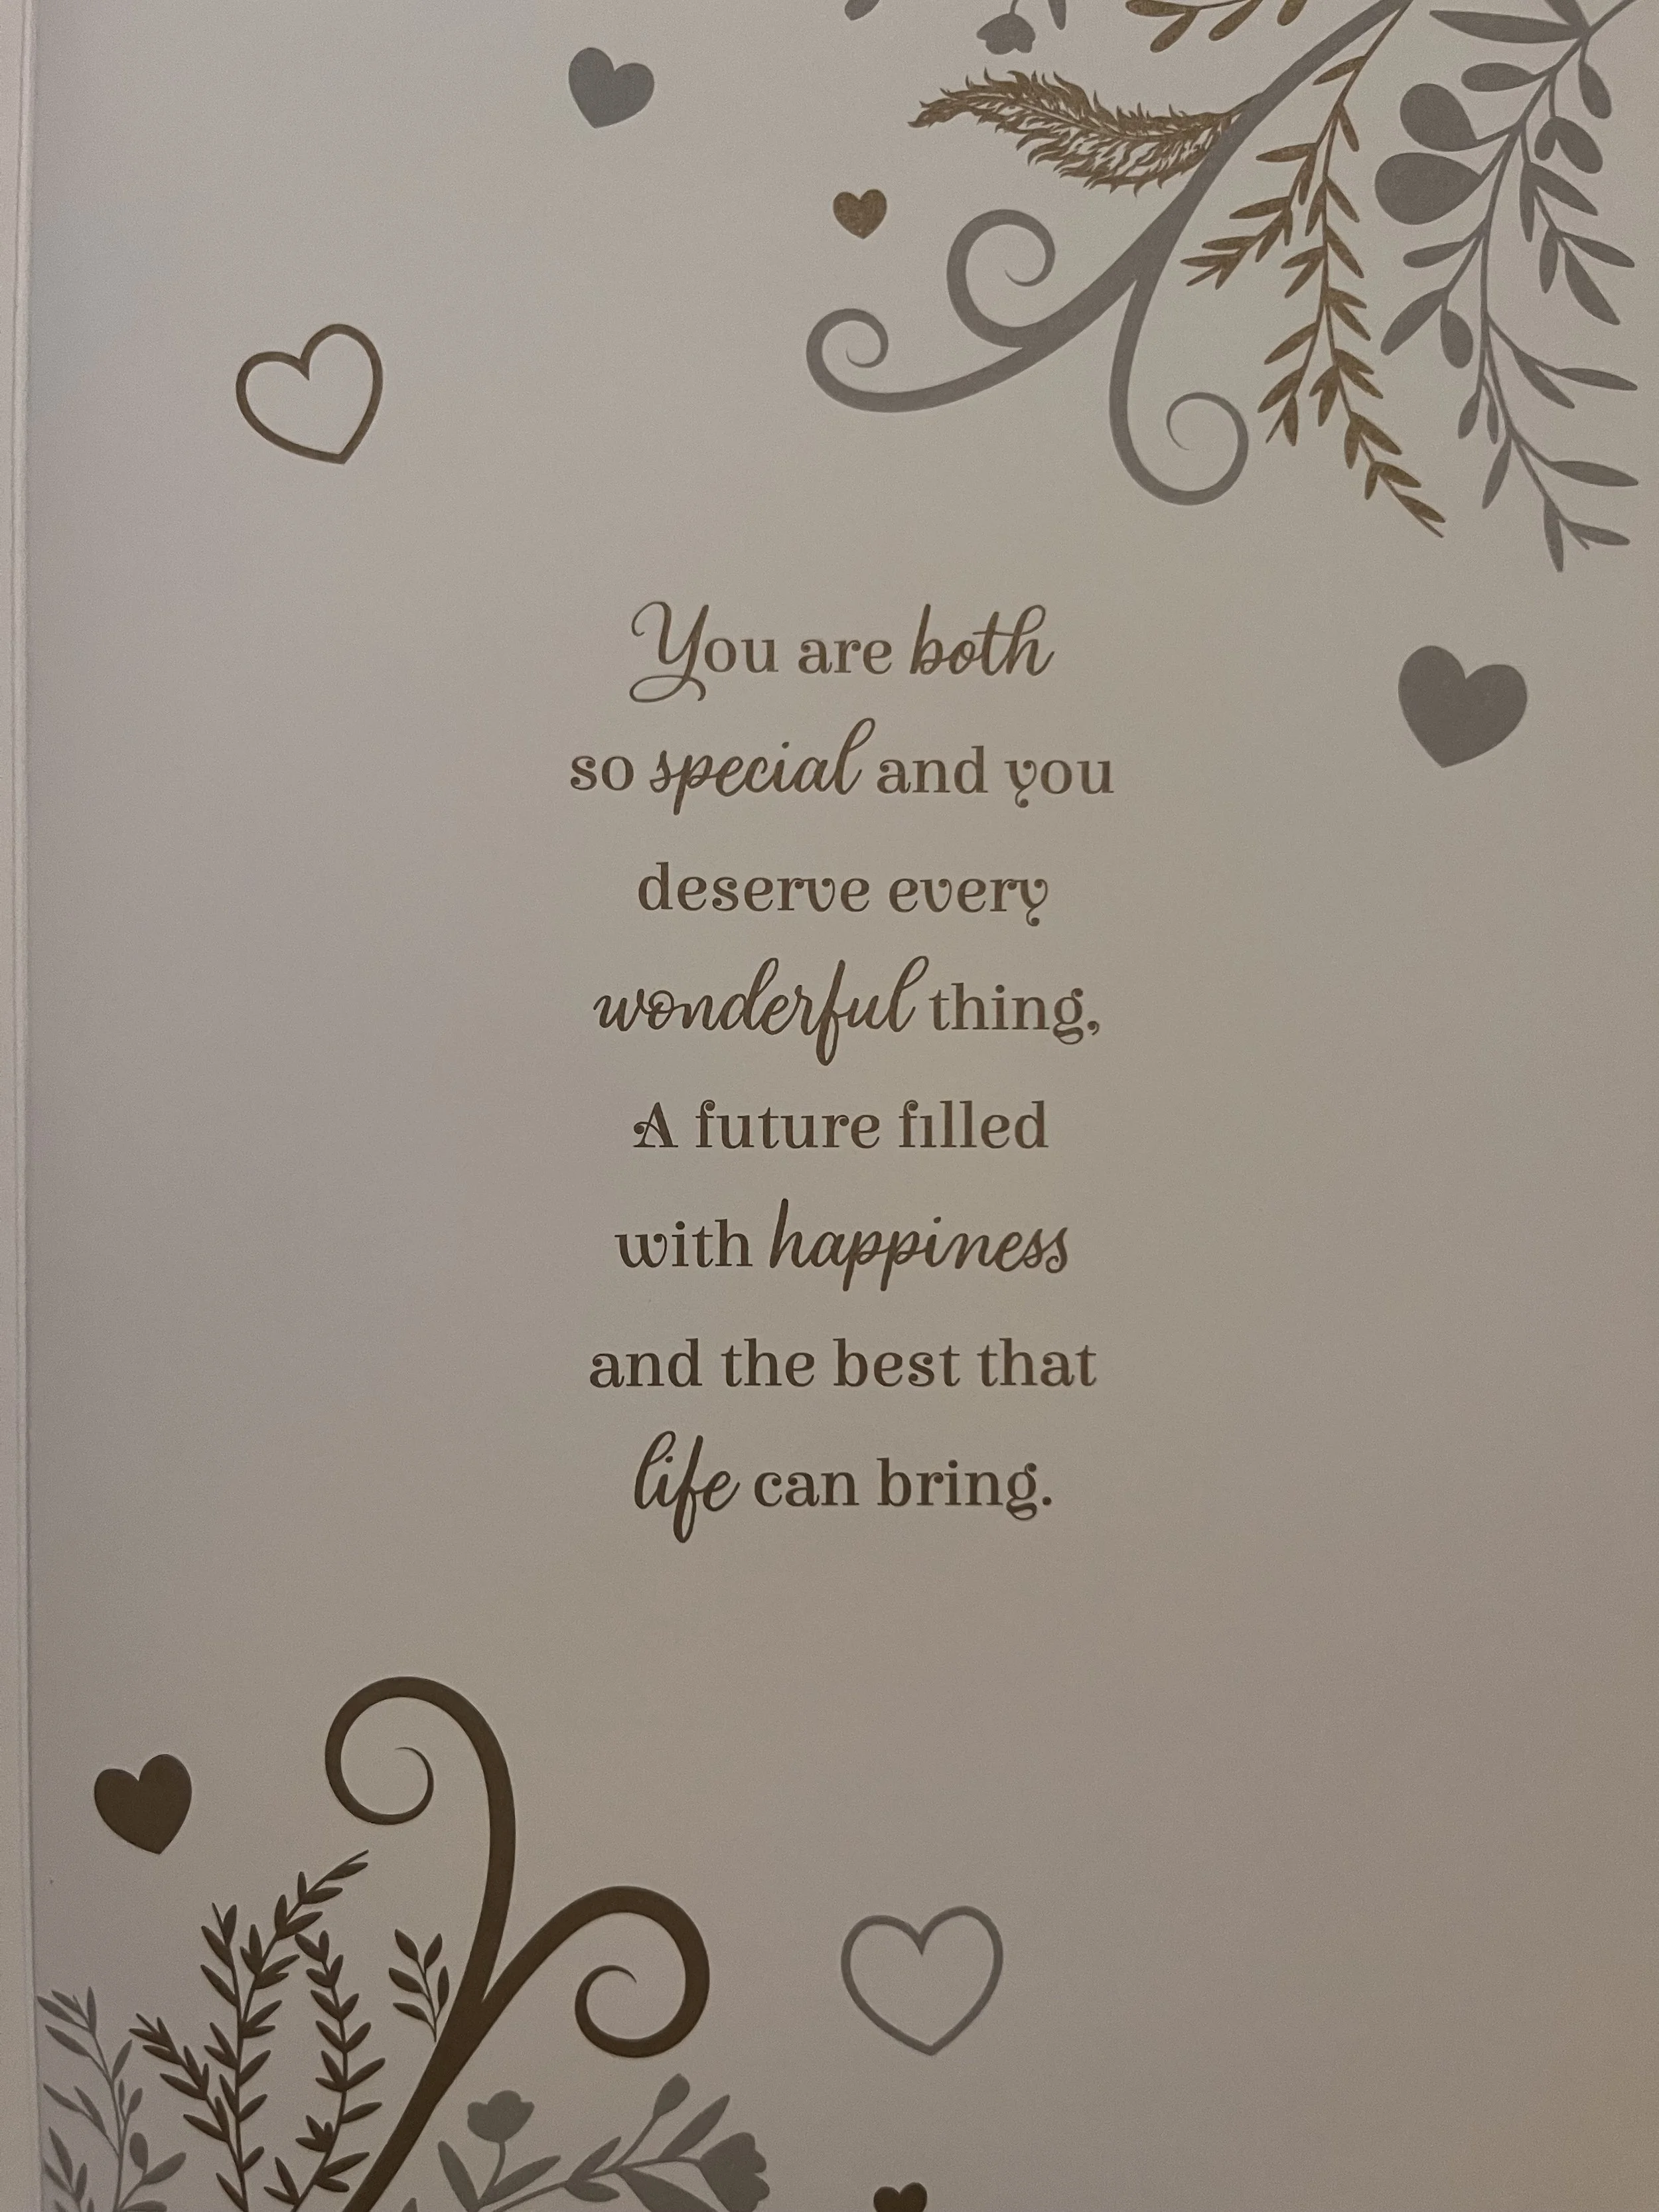 You are both
so special and you
deserve every
wonderful thing,
A future filled
with happiness
and the best that
life can bring.